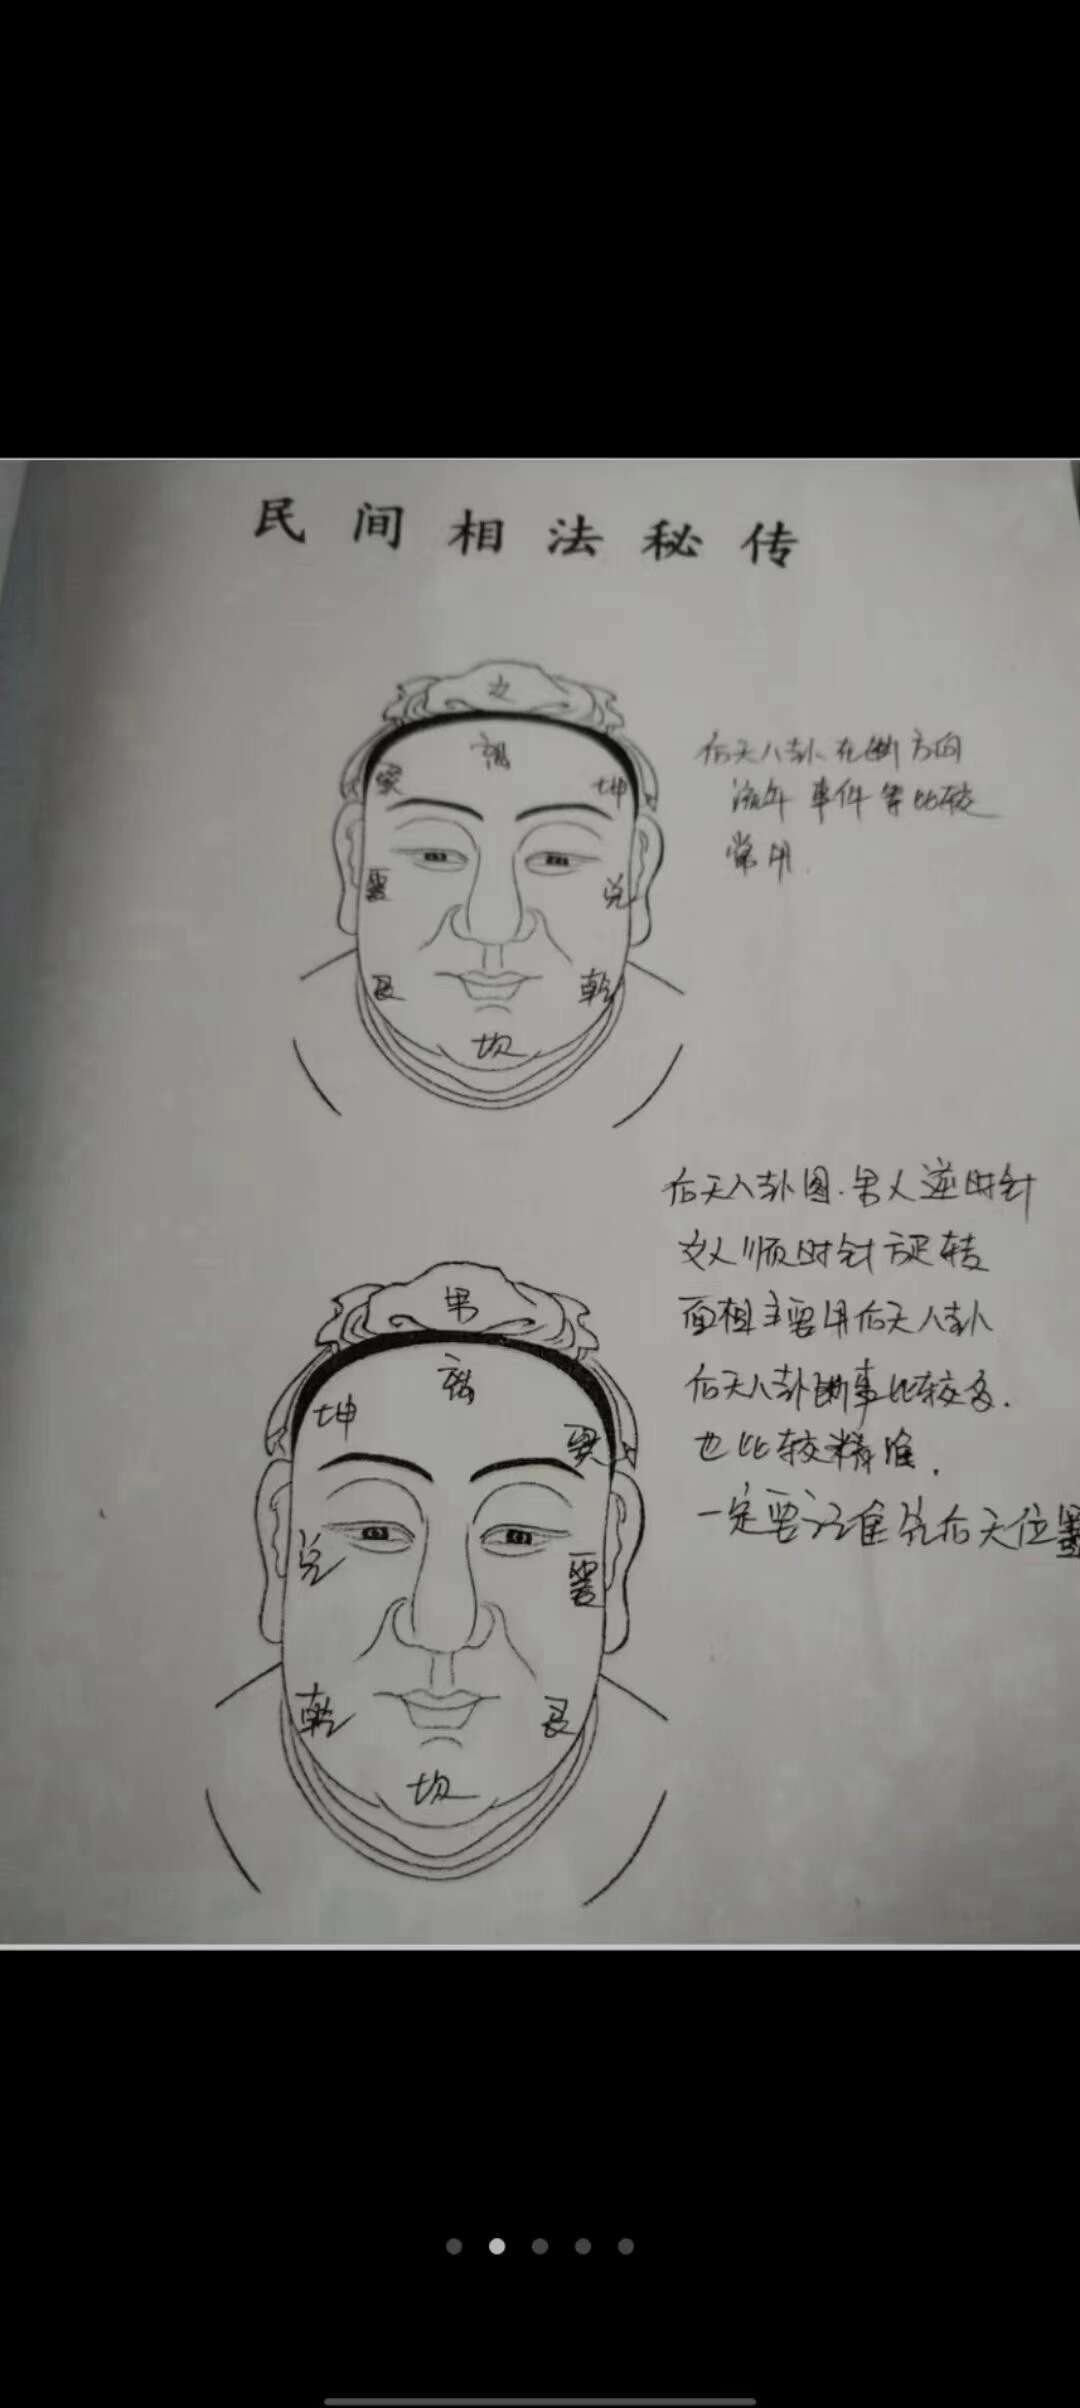 民间相法秘传
女
離
巽
坤
震
兑
艮
乾
坎
后天八卦在断方向
流年 事件等比较
常用.
后天八卦图.男人逆时针
女人顺时针旋转
面相主要用后天八卦
后天八卦断事比较多.
也比较精准.
一定要记准光后天位置
男
離
坤
巽
兑
震
乾
艮
坎